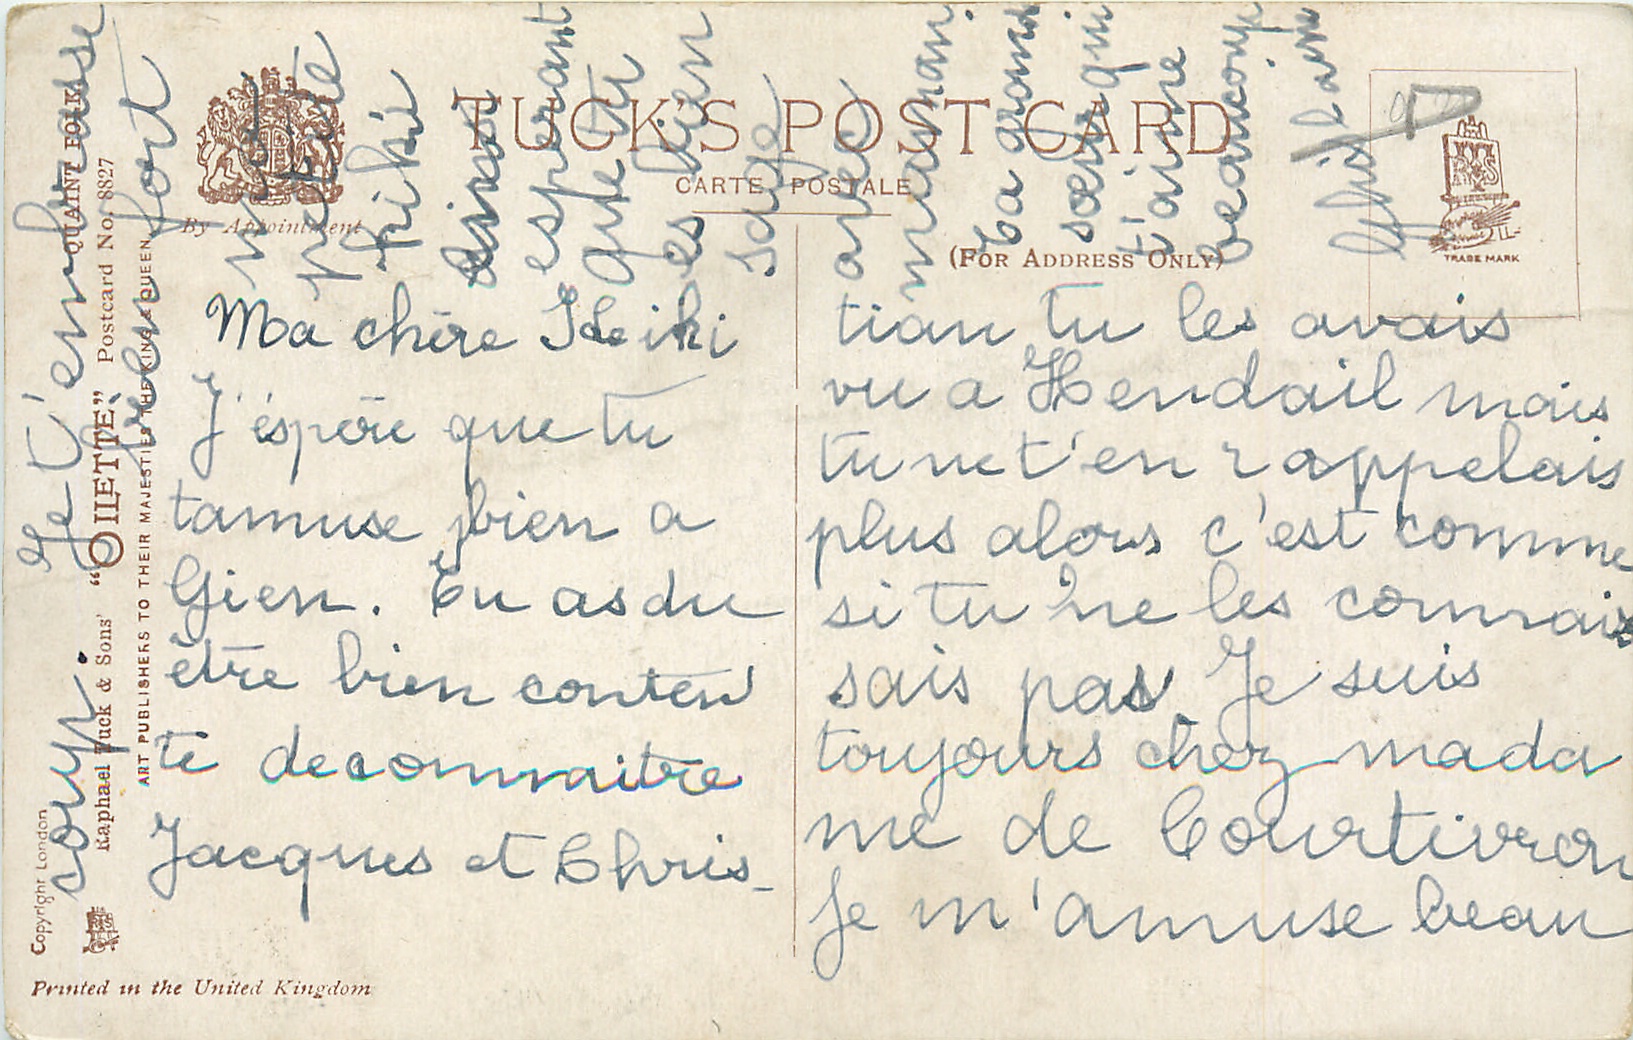 TUCK'S POST CARD
CARTE POSTALE
By Appointment
(FOR ADDRESS ONLY)
TRADE MARK
Ma chère Ideiki
J'éspére que tu
tamuse bien a
Gien. Tu as du
être bien conten
te deconnaitre
Jacques et Chris-
tian tu les avais
vu a Hendail mais
tu ne t'en rappelais
plus alors c'est comme
si tu ne les connais
sais pas. Je suis
toujours chez mada
me de Courtivron
Je m'amuse beau
coup.
Je t'embrasse
bien fort
ma
petite
kiki
esperant
que tu
es bien
sage
avec
maman.
Ta grande
sœur qui
t'aime
beaucoup
Ghislaine
Copyright London
Raphael Tuck & Sons' "OILETTE" QUAINT FOLK
Postcard No. 8827
ART PUBLISHERS TO THEIR MAJESTIES THE KING & QUEEN
Printed in the United Kingdom